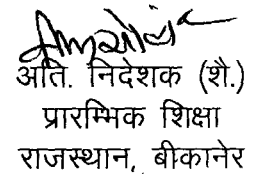 अति. निदेशक (शै.)
प्रारम्भिक शिक्षा
राजस्थान, बीकानेर